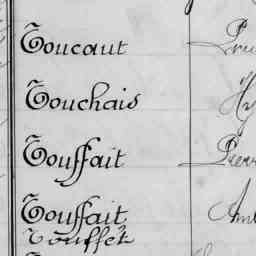 Toucaut
Touchais
Touffait
Touffait
Touffet